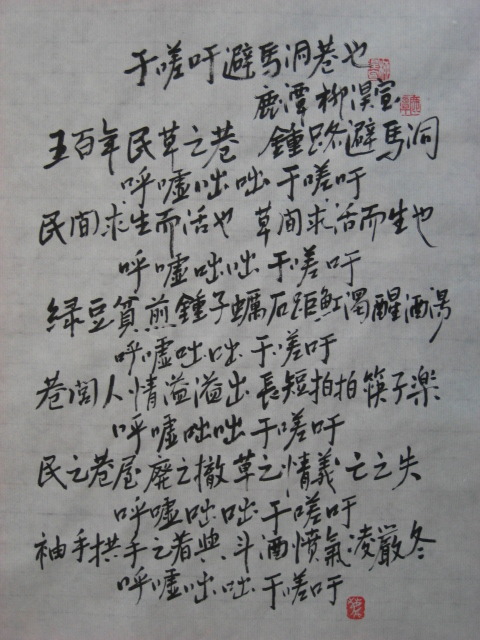 于嗟吁避馬洞巷也
鹿潭柳淏宣
五百年民草之巷 鍾路避馬洞
呼噓咄咄于嗟吁
民间求生而活也 草间求活而生也
呼噓咄咄于嗟吁
緑豆質煎鍾子蠣石距魟濁醒酒湯
呼噓咄咄于嗟吁
巷閭人情溢溢出 長短拍拍筷子楽
呼噓咄咄于嗟吁
民之巷屋廃之撤 草之情義亡之失
呼噓咄咄于嗟吁
袖手拱手之者與 斗酒憤氣凌嚴冬
呼噓咄咄于嗟吁